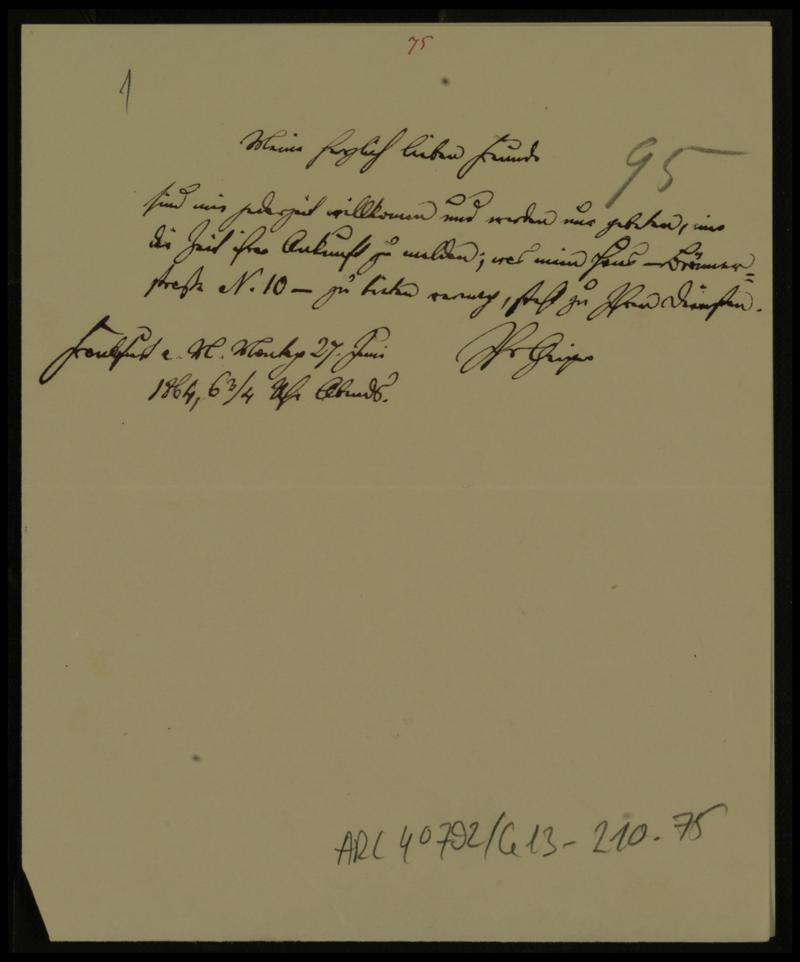 75
1
95
Meine herzlich lieben Freunde
sind mir jederzeit willkommen und werden nur gebeten, mir
die Zeit ihrer Ankunft zu melden; was mein Haus – Brönner=
straße N. 10 – zu bieten vermag, steht zu Ihren Diensten.
Frankfurt a. M. Montag 27. Juni
Ihr Geiger
1864, 6 3/4 Uhr Abends.
ARC 4°792/G13-210.75